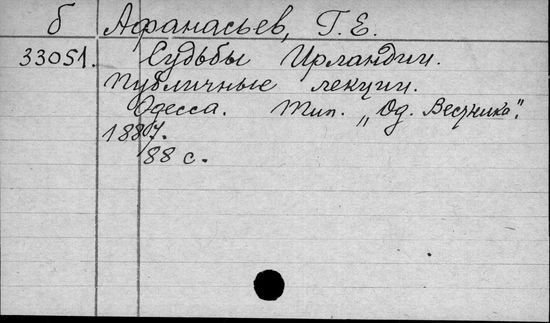 б Афанасьев, Г. Е.
33051. Судьбы Ирландии.
Публичные лекции.
Одесса. Тип. „Од. Вестника".
1887.
88 с.